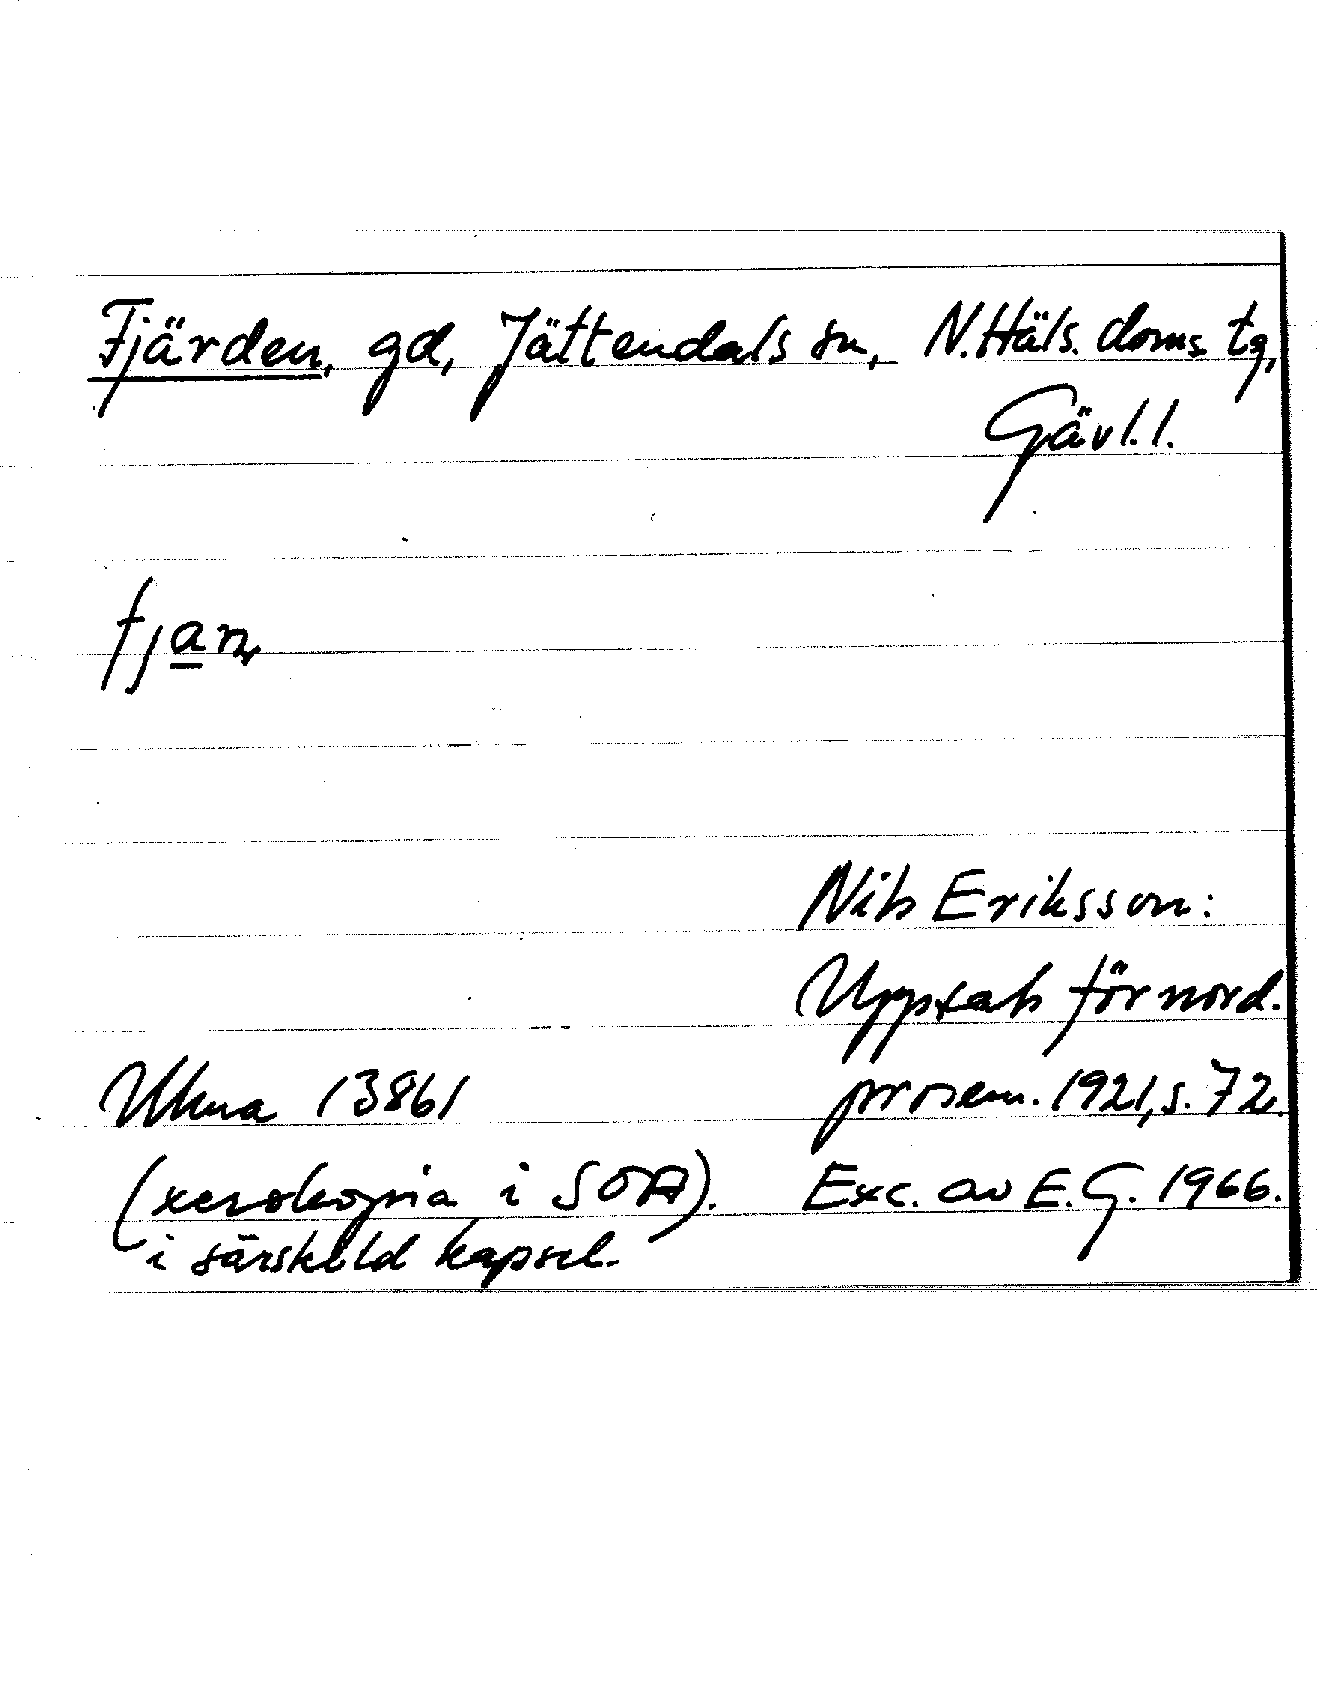 Fjärden, gd, Jättendals sn, N.Häls. doms. tg,
Gävl.l.
fjan
Nils Eriksson:
Uppsats för nord.
Ulma 13861 prosem. 1921, s. 72.
(xerokopia i SOA). Exc. av E.G. 1966.
i särskild kapsel.